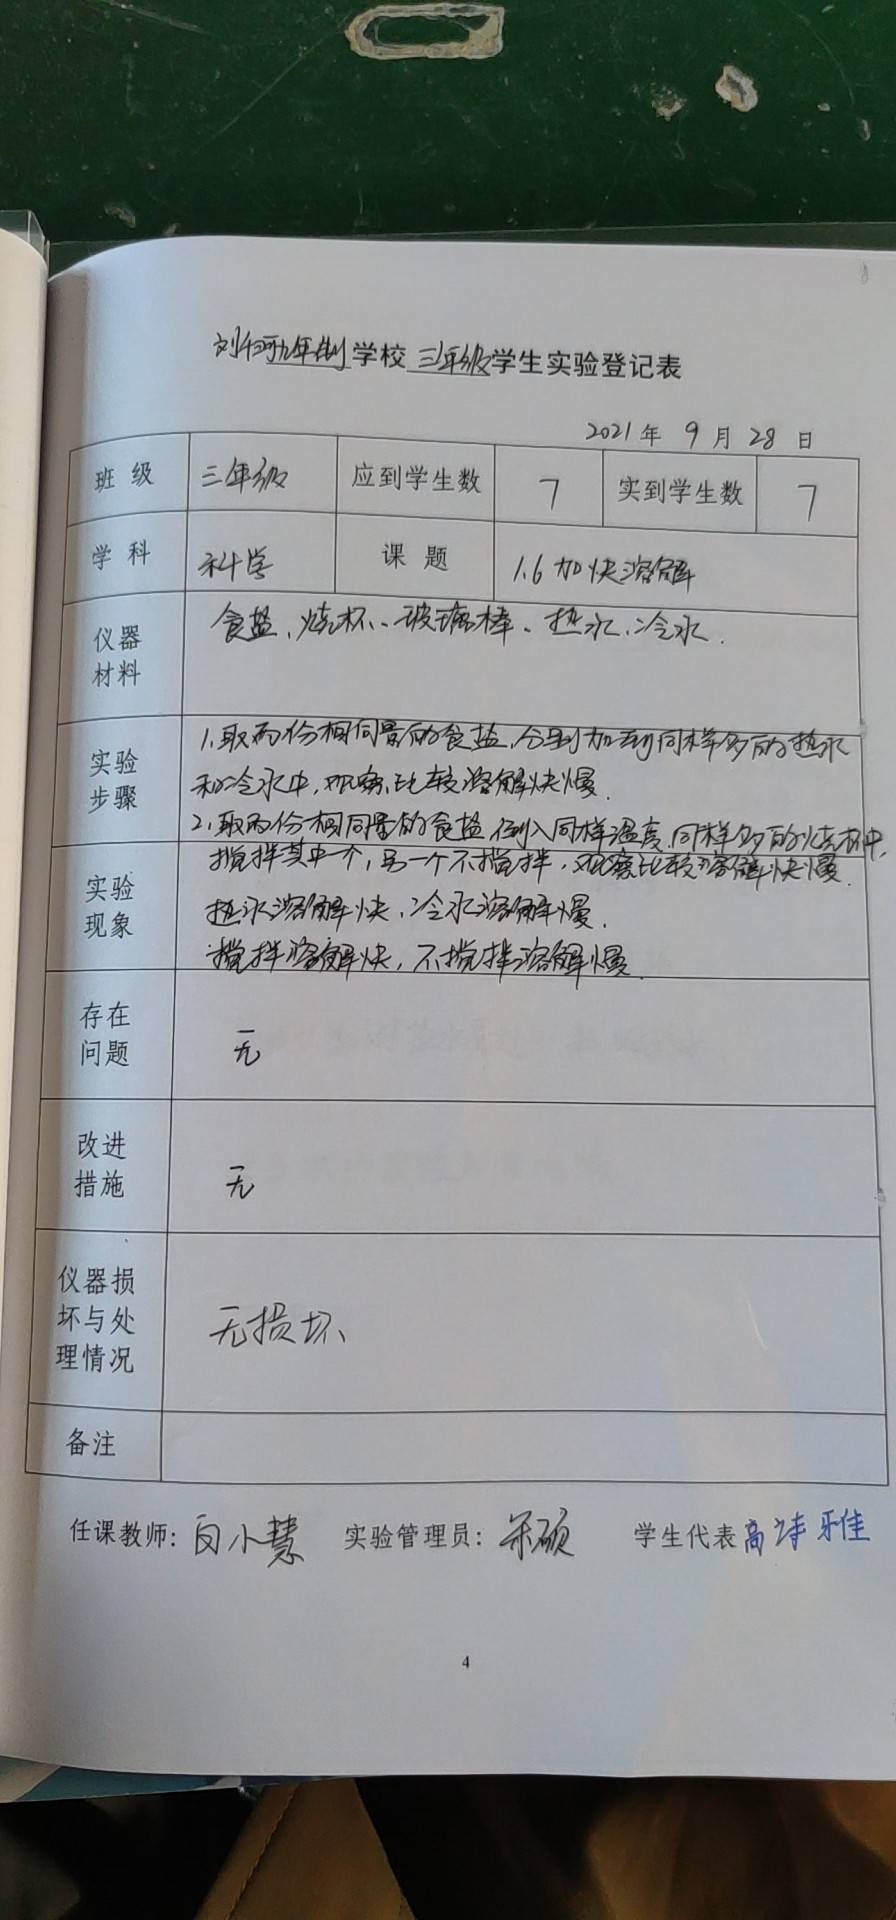 刘河九年制学校三年级学生实验登记表
2021年 9月 28日
班级 三年级 应到学生数 7 实到学生数 7
学科 科学 课题 1.6加快溶解
仪器 食盐、烧杯、玻璃棒、热水、冷水.
材料
1.取两份相同量的食盐,分别加到同样多的热水
实验
步骤 和冷水中,观察比较溶解快慢.
2.取两份相同量的食盐倒入同样温度,同样多的烧杯中,
搅拌其中一个,另一个不搅拌,观察比较溶解快慢.
实验
现象 热水溶解快,冷水溶解慢.
搅拌溶解快,不搅拌溶解慢.
存在
问题 无
改进
措施 无
仪器损
坏与处 无损坏、
理情况
备注
任课教师:白小慧 实验管理员:硕 学生代表高诗雅
4